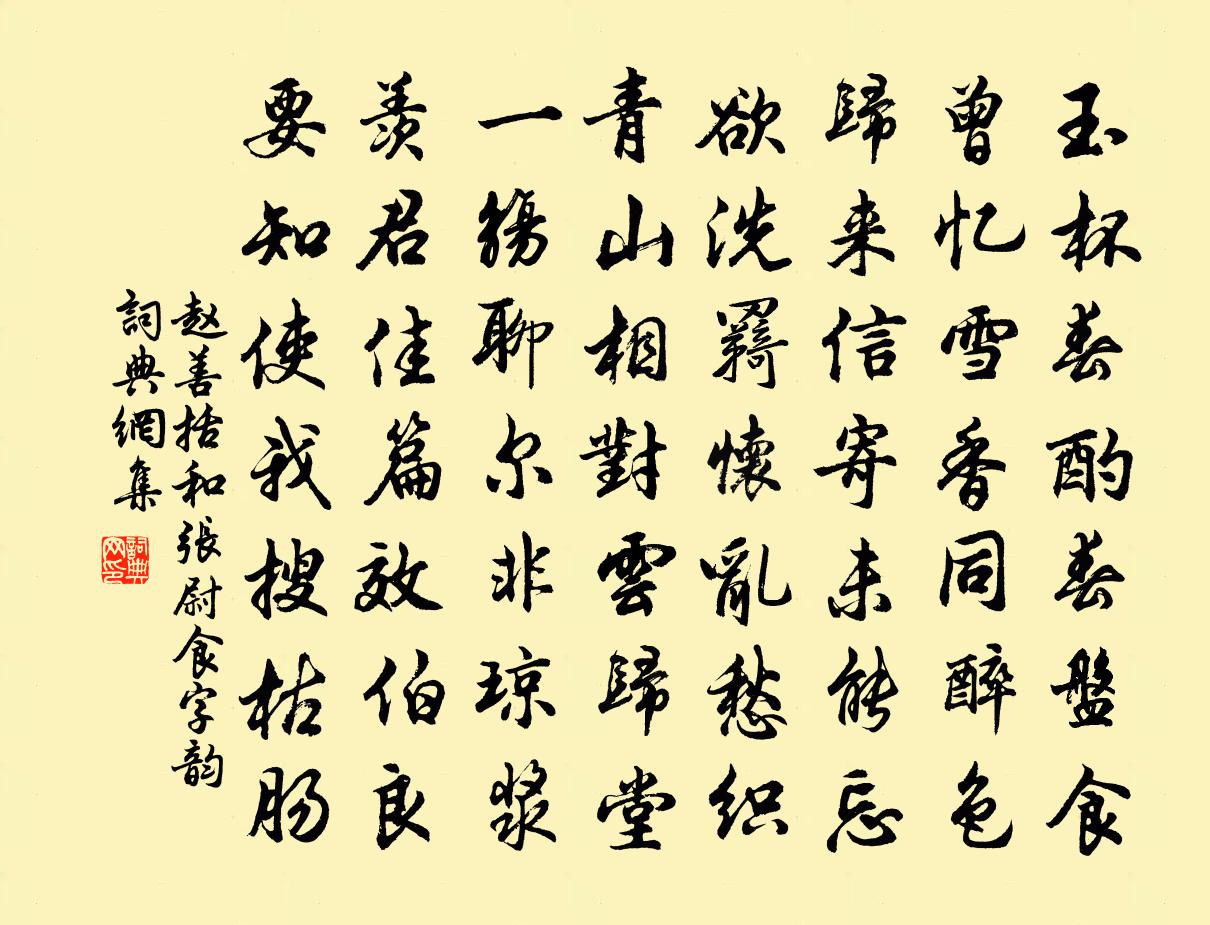 玉杯春酌春盤食
曾忆雪香同醉色
歸来信寄未能忘
欲洗羇懷亂愁织
青山相對雲歸堂
一觞聊尔非琼漿
羡君佳篇效伯良
要知使我搜枯肠
赵善括和張尉食字韵
詞典網集
詞典
网印